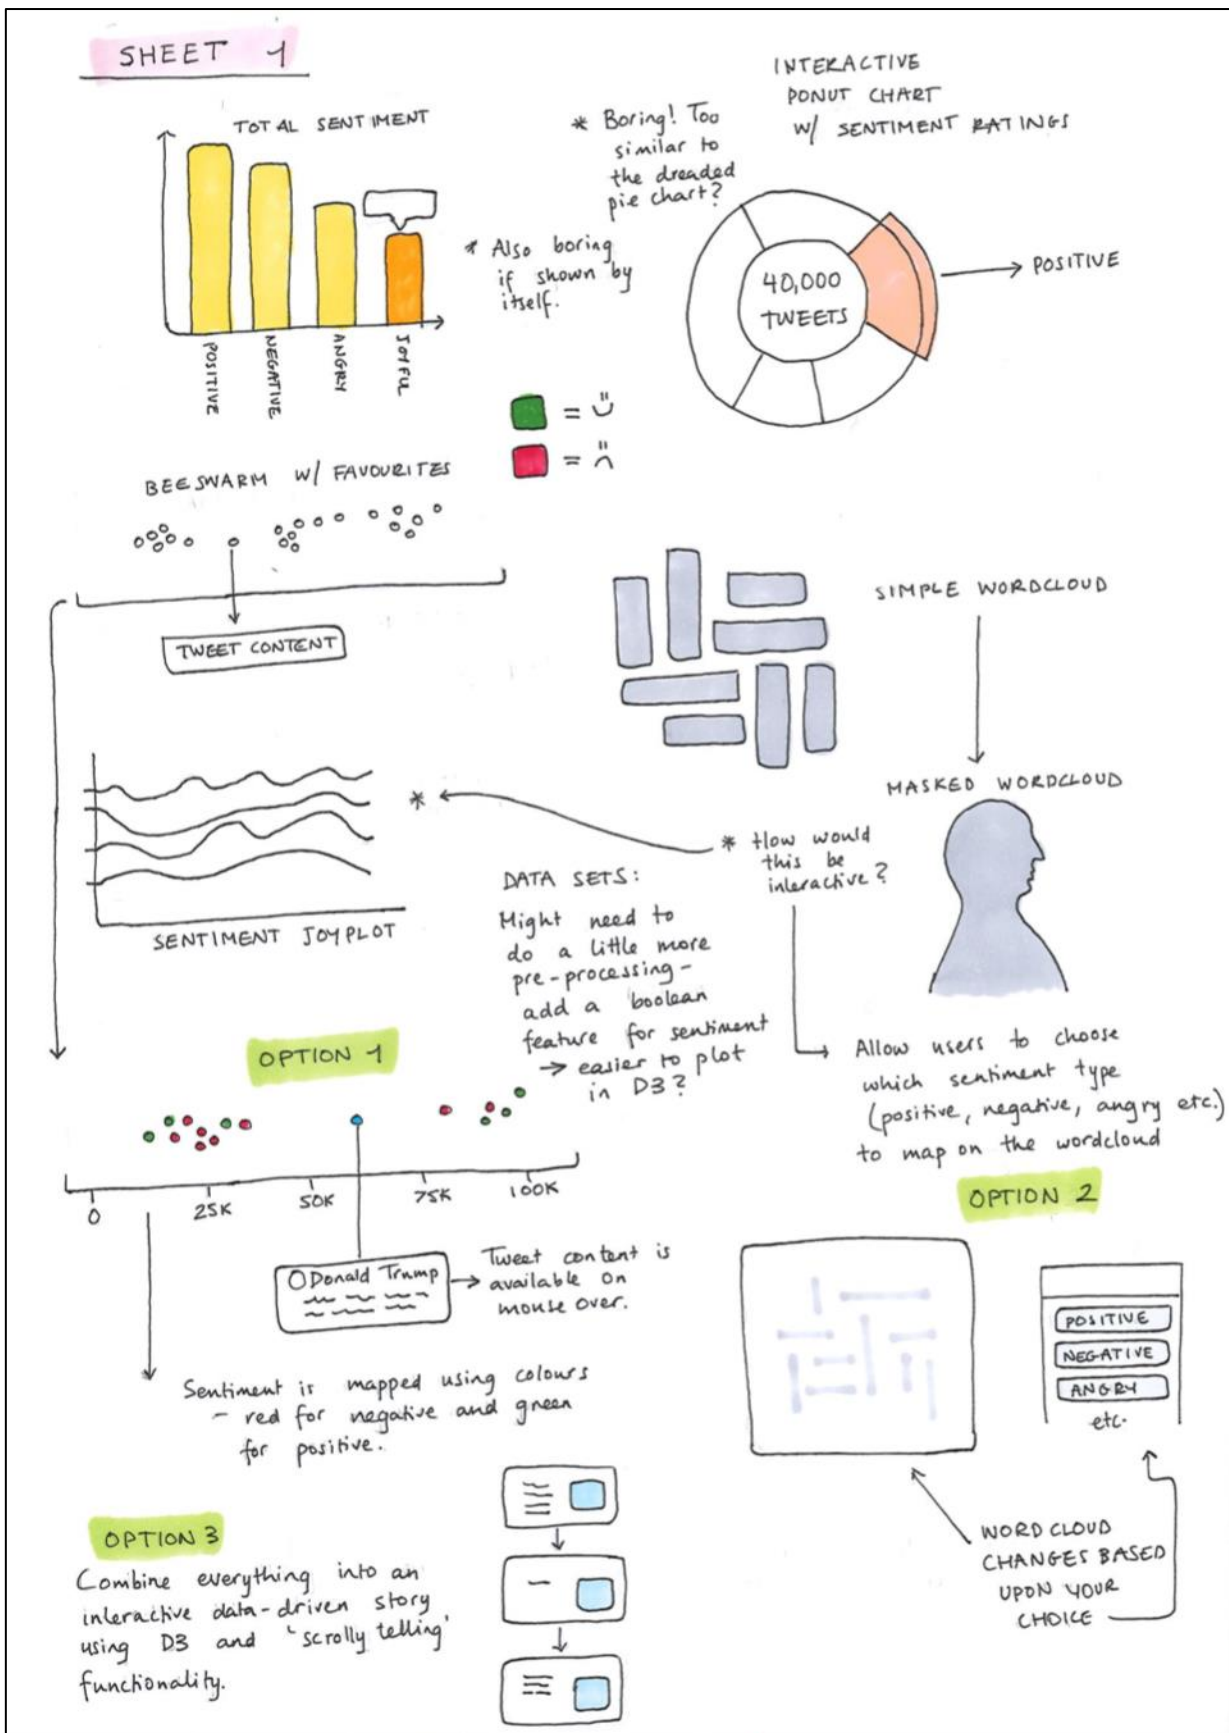 SHEET 1
TOTAL SENTIMENT
POSITIVE
NEGATIVE
ANGRY
JOYFUL
* Also boring
if shown by
itself.
* Boring! Too
similar to
the dreaded
pie chart?
INTERACTIVE
DONUT CHART
W/ SENTIMENT RATINGS
40,000
TWEETS
POSITIVE
=
=
BEESWARM W/ FAVOURITES
TWEET CONTENT
SIMPLE WORDCLOUD
MASKED WORDCLOUD
*
* How would
this be
interactive?
SENTIMENT JOYPLOT
DATA SETS:
Might need to
do a little more
pre-processing-
add a boolean
feature for sentiment
→ easier to plot
in D3?
Allow users to choose
which sentiment type
(positive, negative, angry etc.)
to map on the wordcloud
OPTION 1
0
25K
50K
75K
100K
Donald Trump
Tweet content is
available on
mouse over.
Sentiment is mapped using colours
- red for negative and green
for positive.
OPTION 2
POSITIVE
NEGATIVE
ANGRY
etc.
WORDCLOUD
CHANGES BASED
UPON YOUR
CHOICE
OPTION 3
Combine everything into an
interactive data-driven story
using D3 and 'scrolly telling'
functionality.